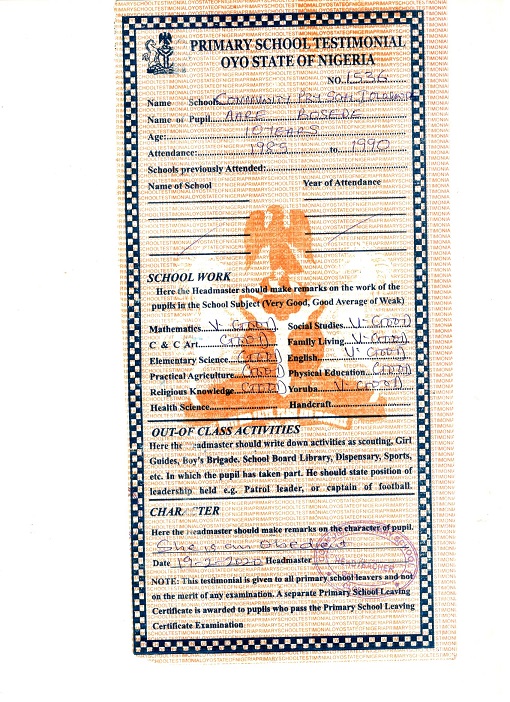 PRIMARY SCHOOL TESTIMONIAL
OYO STATE OF NIGERIA
NO. 1536
Name School COMMUNITY PRY SCH
Name of Pupil AARE BOSEDE
Age: 10 YEARS
Attendance: 1985 to 1990
Schools previously Attended:
Name of School Year of Attendance
SCHOOL WORK
Here the Headmaster should make remarks on the work of the
pupils in the School Subject (Very Good, Good Average of Weak)
Mathematics V. GOOD Social Studies V. GOOD
C & C Art GOOD Family Living V. GOOD
Elementary Science GOOD English V. GOOD
Practical Agriculture GOOD Physical Education GOOD
Religious Knowledge GOOD Yoruba V. GOOD
Health Science Handcraft
OUT-OF CLASS ACTIVITIES
Here the eadmaster should write down activities as scouting, Girl
Guides, Boy's Brigade. School Board Library, Dispensary, Sports,
etc. In which the pupil has taken part. He should state position of
leadership held e.g. Patrol leader, or captain of football.
CHARACTER
Here the Headmaster should make remarks on the character of pupil.
She is an obedient
Date 19-2-2020 Headmaster
HEADTEACHER
NOTE: This testimonial is given to all primary school leavers and not
on the merit of any examination. A separate Primary School Leaving
Certificate is awarded to pupils who pass the Primary School Leaving
Certificate Examination